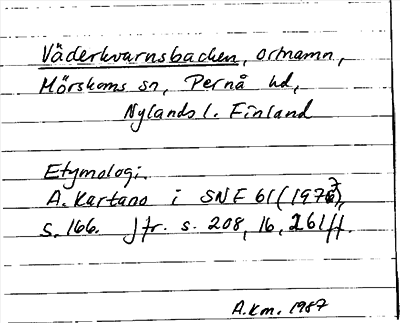 Väderkvarnsbacken, ortnamn,
Mörskoms sn, Pernå hd,
Nylands l. Finland
Etymologi.
A. Kartano i SNF 61 (1973),
s. 166. Jfr. s. 208, 16, 261 ff.
A.Km. 1987